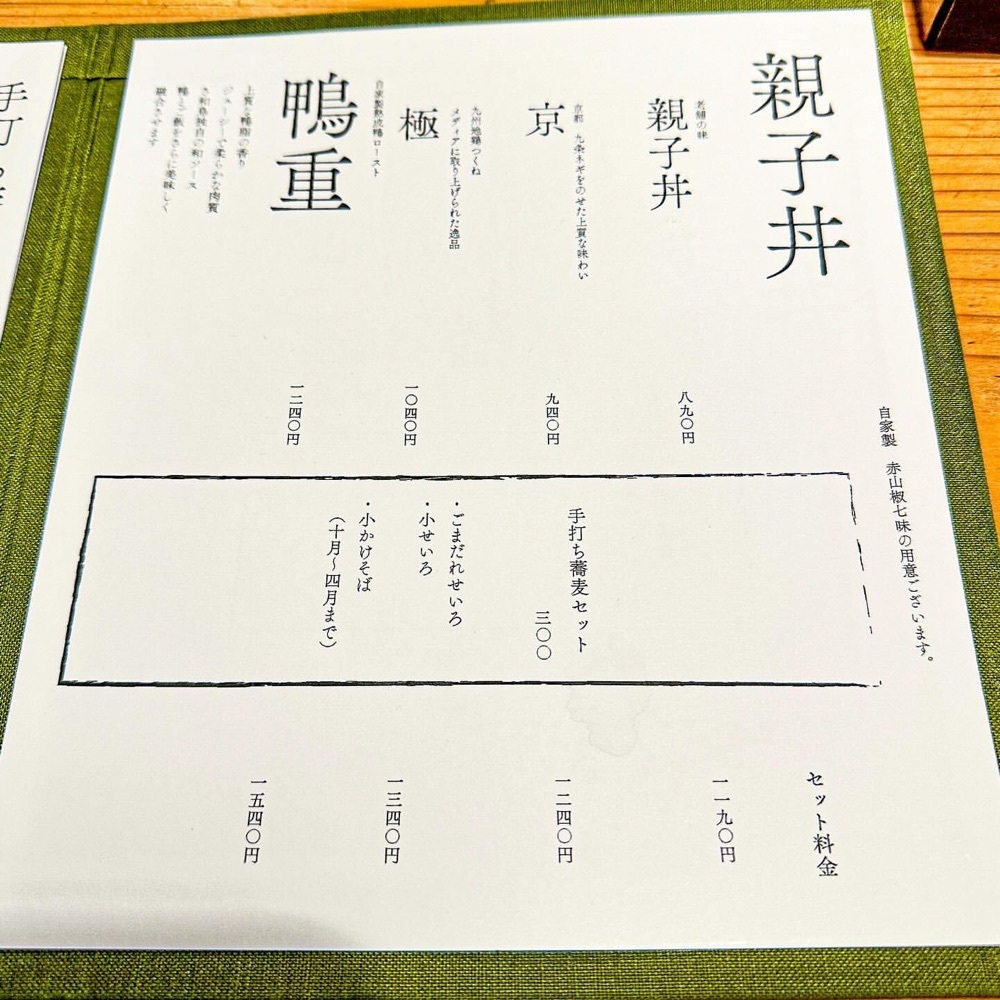 親子丼
自家製 赤山椒七味の用意ございます。
老舗の味
親子丼
八九〇円
京都 九条ネギをのせた上質な味わい
京
九四〇円
九州地鶏つくね
メディアに取り上げられた逸品
極
一〇四〇円
自家製熟成鴨ロースト
鴨重
上質な鴨脂の香り
ジューシーで柔らかな肉質
独自の和ソース
鴨とご飯をさらに美味しく
融合させます
一二四〇円
手打ち蕎麦セット
三〇〇
・ごまだれせいろ
・小せいろ
・小かけそば
(十月〜四月まで)
セット料金
一一九〇円
一二四〇円
一三四〇円
一五四〇円
手打